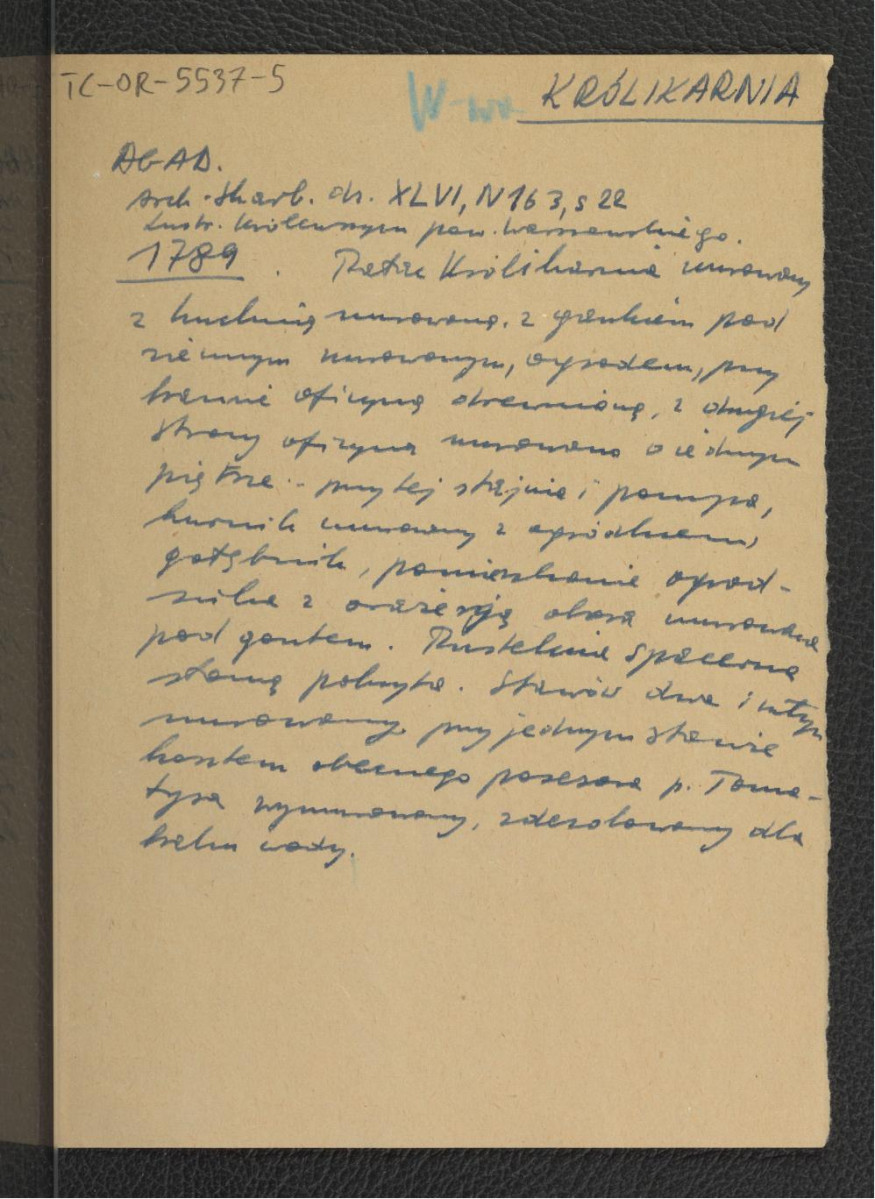 TC-OR-5537-5
W-wa KRÓLIKARNIA
AGAD.
Arch. Skarb. dz. XLVI, N 163, s 22
Lustr. królewszczyzn pow. Warszawskiego.
1789. Pałac Królikarnia murowany
z kuchnią murowaną, z gankiem pod
ziemnym murowanym, ogrodem, przy
bramie oficyną drewnianą, z drugiej
strony oficyna murowana o iednym
piętrze - przy tej stajnia i pompa,
kurnik murowany z ogródkiem,
gołębnik, pomieszkanie ogrod-
nika z oranżerją obora murowana
pod gontem. Pustelnia spacerna
słomą pokryta. Stawów dwa i młyn
murowany przy jednym stawie
kosztem obecnego posesora p. Toma-
tysa wymurowany, zdezolowany dla
braku wody.